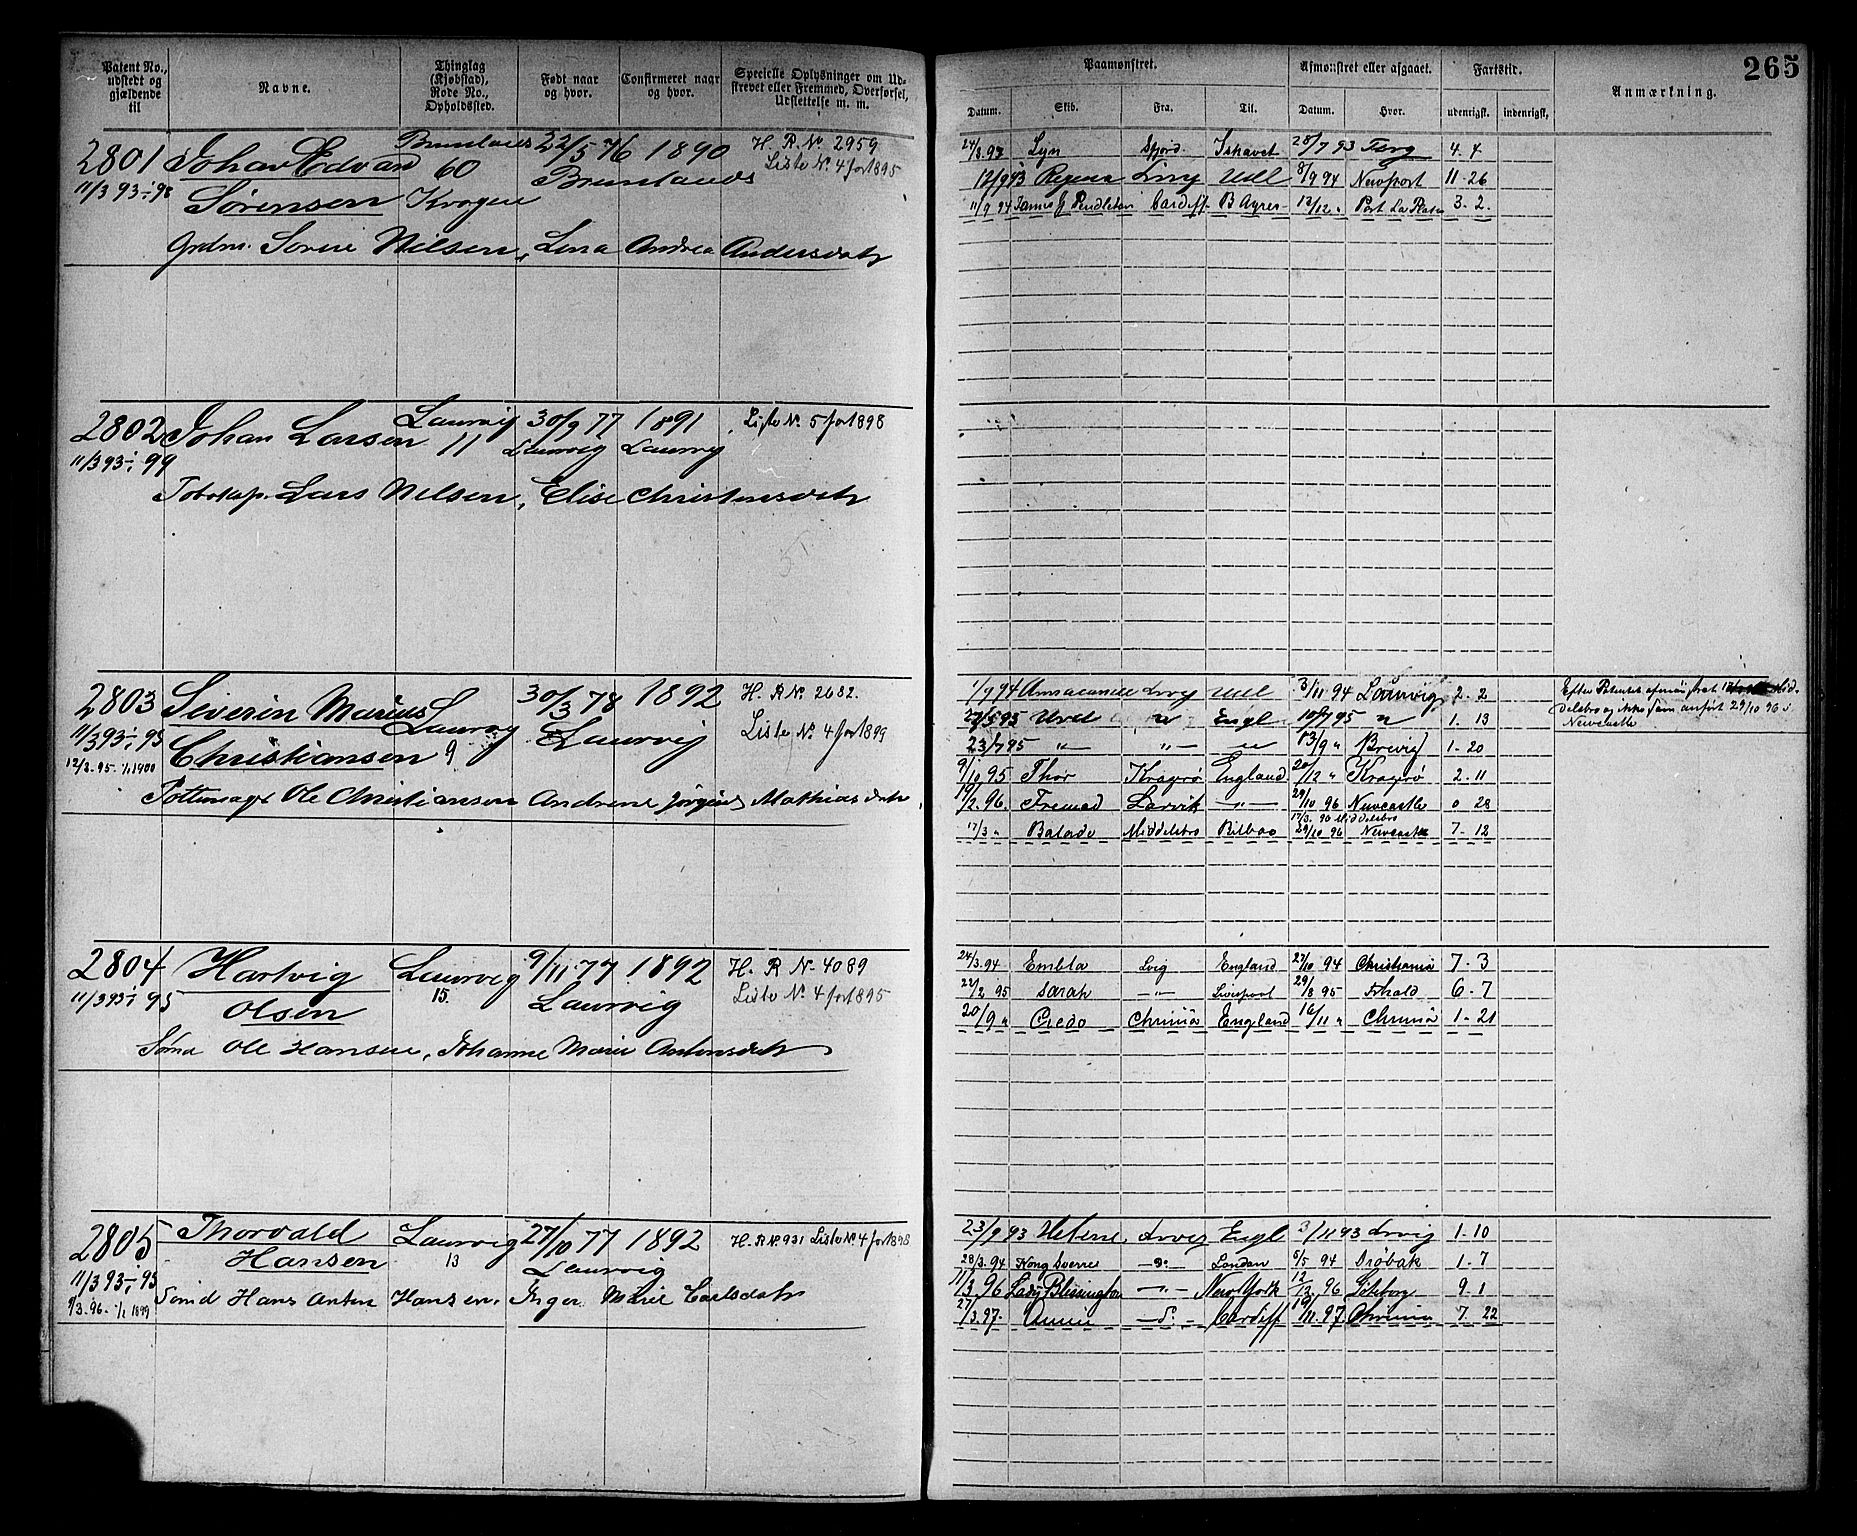 265
Patent No., udstedt og gjældende til
Navne.
Thinglag (Kjøbstad), Rode No., Opholdssted.
Født naar og hvor.
Confirmeret naar og hvor.
Specielle Oplysninger om Udskrevet eller Fremmed, Overførsel, Udslettelse m. m.
Paamønstret.
Afmønstret eller afgaaet.
Fartstid.
Anmærkning.
Datum. Skib. Fra. Til. Datum. Hvor. udenrigsk. indenrigsk.
2801 Johan Edvard Brunlanes 22/5 76 1890 H. R. No 2959
60 Brunlanes Liste No 4 for 1895
11/3 93 - i 98 Sørensen
Grdm. Søren Nilsen, Lina Andrea Andersdatr
24/3 93 Lyn Sfjord Ishavet 28/7 93 4 . 4
12/9 93 Regina Lvig Udl 8/9 94 Newport 11 - 26
11/9 94 James G Pendleton Cardiff B Ayres 12/12 " Port La Plata 3 . 2.
2802 Johan Larsen Laurvig 30/9 77 1891 Liste No 5 for 1898
11/3 93 - i 99 11 Laurvig Laurvig
Lars Nilsen, Elise Christensdatr
2803 Severin Marius Laurvig 30/3 78 1892 H. R No 2682.
11/3 93 - i 95 Christiansen 9 Laurvig Liste No 4 for 1899
12/3 . 95 - 1/1 1900
Pottemager Ole Christiansen Andrine Jørgine Mathiasdatr
1/9 94 Lvig Udl 3/11 94 Laurvig 2 . 2
27/5 95 Urd " Engl 10/7 95 " 1 . 13
23/7 95 " " " 13/9 " Brevig 1 - 20
9/10 95 Thor Kragerø England 20/12 " Kragerø 2 - 11
19/2 96. Fremad Larvik " 29/10 96 Newcastle 0 28
17/3. 96 Middelsbro
17/3 " Middelsbro Bilbao 29/10 96 Newcastle 7 - 12
Efter Patentet afmønstret 17/3 Mid-
delsbro og ikke som anført 29/10 96 i
Newcastle
2804 Hartvig Laurvig 9/11 77 1892 H. R No 4089
11/3 93 - i 95 Olsen 15. Laurvig Liste No 4 for 1895
Sømd Ole Hansen, Johanne Marie Antonsdatr
24/3 . 94 Embla Lvig England 27/10 94 Christiania 7 - 3
22/2 95 Sarah " Liverpool 29/8 95 Fhald 6 - 7
20/9 " Credo Chrania England 16/11 " Chrania 1 - 21
2805 Thorvald Laurvig 27/10 77 1892 H. R No 931 Liste No 4 for 1898
11/3 93 - i 95 Hansen 13 Laurvig
9/3 . 96 . - 1/1 1899 Sømd Hans Anton Hansen. Inger Marie Carlsdatr
23/9 93 Helene Lvig Engl 3/11 93 Lvig 1 - 10
28/3 . 94 Kong Sverre London 5/5 94 Drøbak 1 - 7
11/3 . 96 Lady Blessington " New York 12/12 96 Gøteborg 9 1
27/3 . 97 . Cardiff 19/11 . 97 Chrania 7 . 22